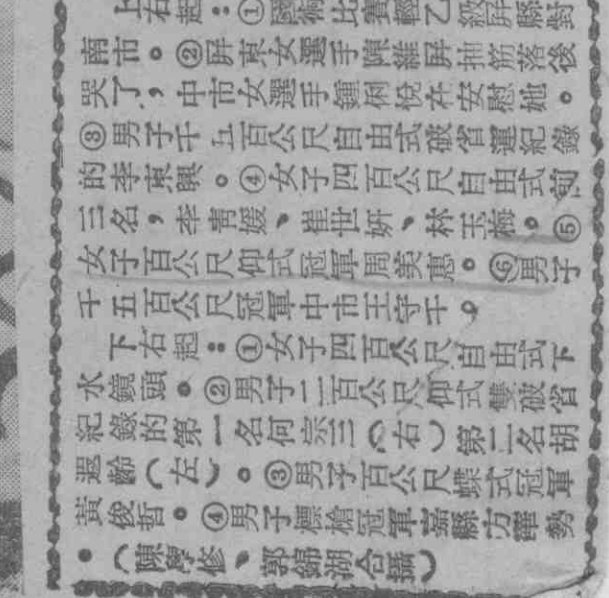 上右起：①國術比賽輕乙級屏縣對
南市。②屏東女選手陳維屏抽筋落後
哭了，中市女選手鍾俐悅在安慰她。
③男子千五百公尺自由式破省運紀錄
的李東興。④女子四百公尺自由式前
三名，李青媛、崔世妍、林玉梅。⑤
女子百公尺仰式冠軍周美惠。⑥男子
千五百公尺冠軍中市王守千。
下右起：①女子四百公尺自由式下
水鏡頭。②男子二百公尺仰式雙破省
紀錄的第一名何宗三（右）第二名胡
遐齡（左）。③男子百公尺蝶式冠軍
黃俊哲。④男子標槍冠軍嘉縣方華勢
。（陳廖修、郭錦湖合攝）